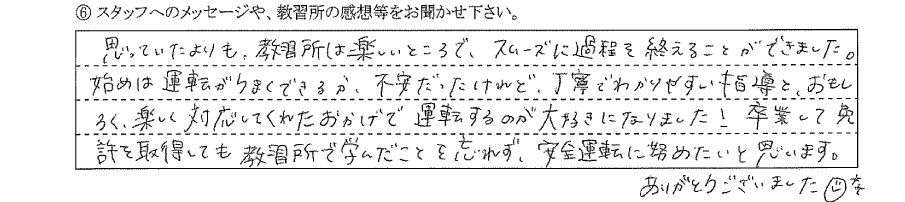 ⑥ スタッフへのメッセージや、教習所の感想等をお聞かせ下さい。
思っていたよりも、教習所は楽しいところで、スムーズに過程を終えることができました。
始めは運転がうまくできるか、不安だったけれど、丁寧でわかりやすい指導と、おもし
ろく、楽しく対応してくれたおかげで運転するのが大好きになりました！卒業して免
許を取得しても教習所で学んだことを忘れず、安全運転に努めたいと思います。
ありがとうございました